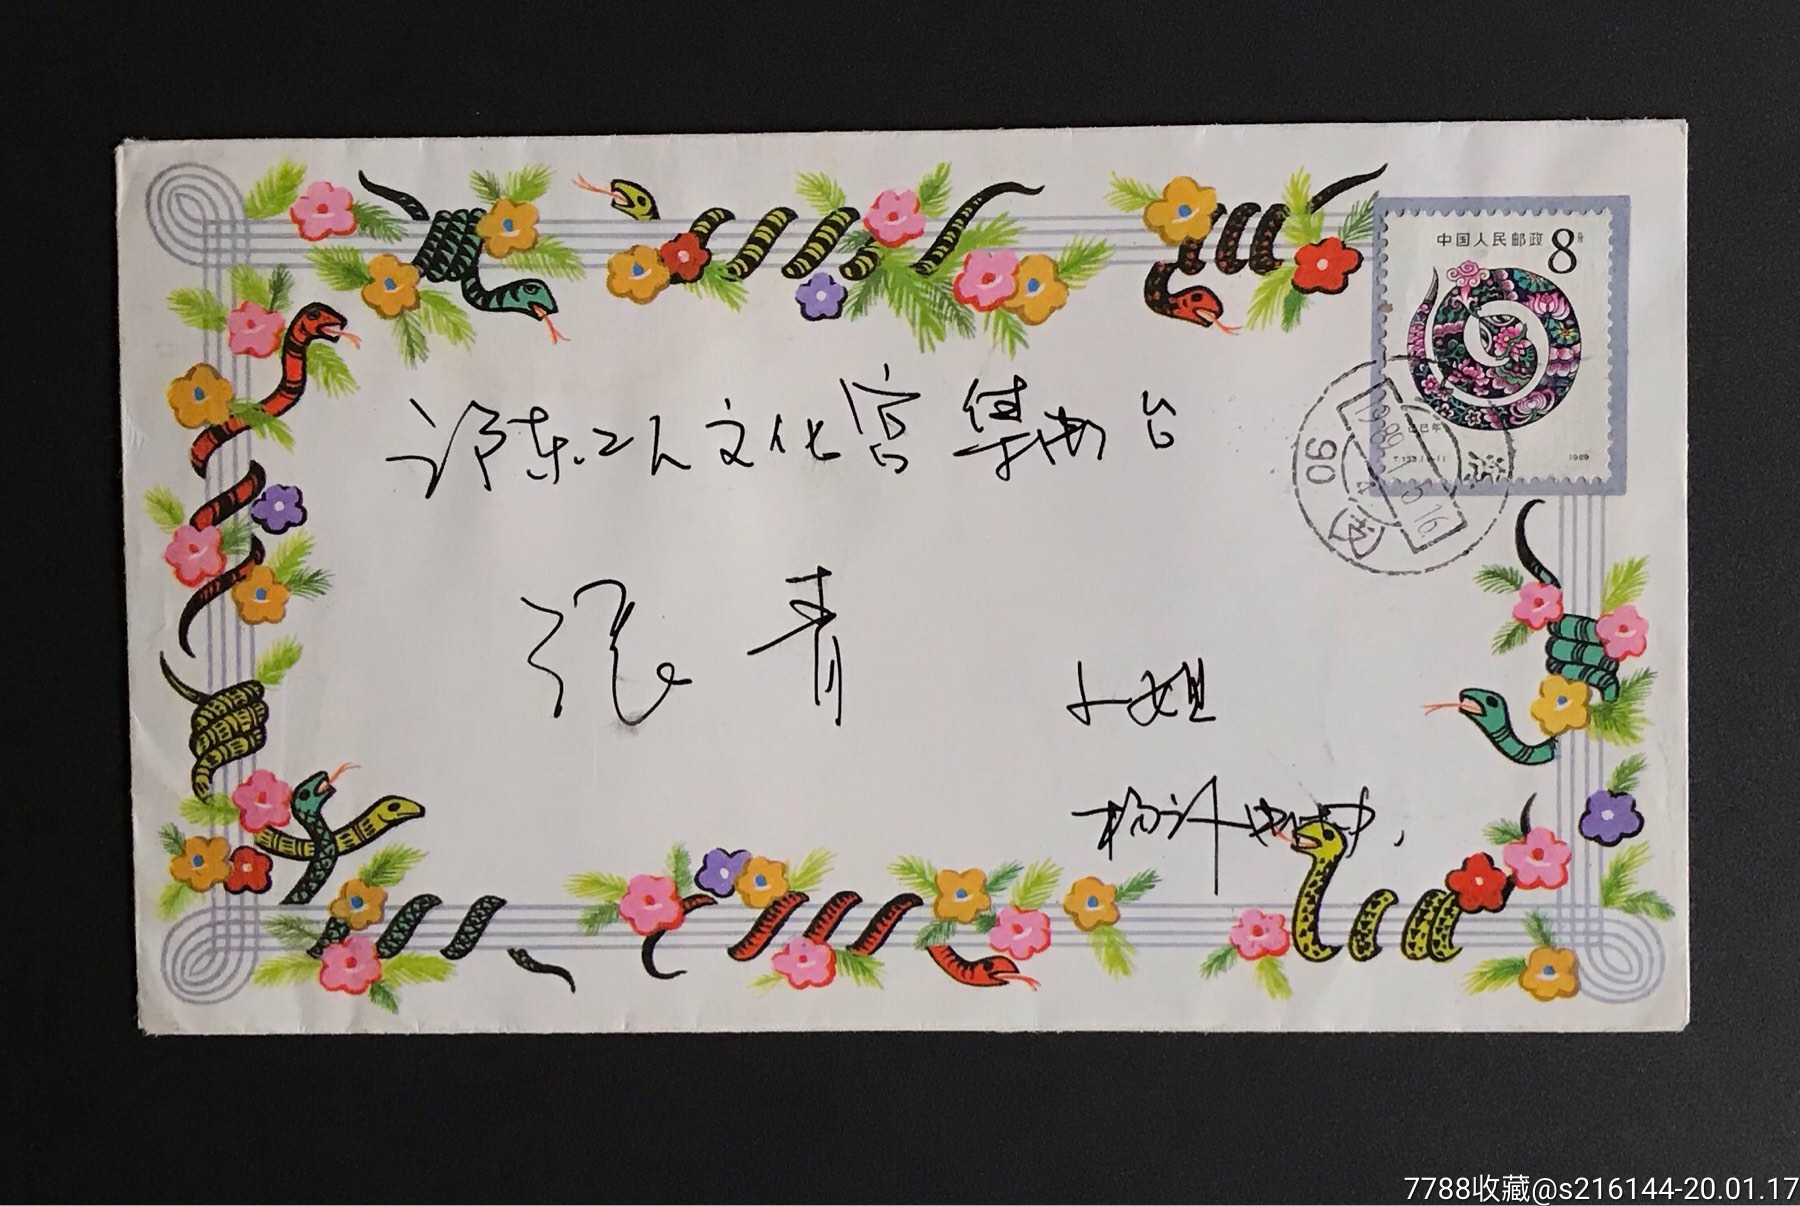 中国人民邮政 8分
己巳年
T.133.(1-1) 1989
沪东工人文化宫集邮台
1989.1.5.16
06
张青
小姐
杨浦
7788收藏@s216144-20.01.17